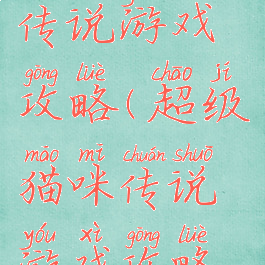 传说游戏
gōng lüè chāo jí
攻略(超级
māo mī chuán shuō
猫咪传说
yóu xì gōng lüè
游戏攻略